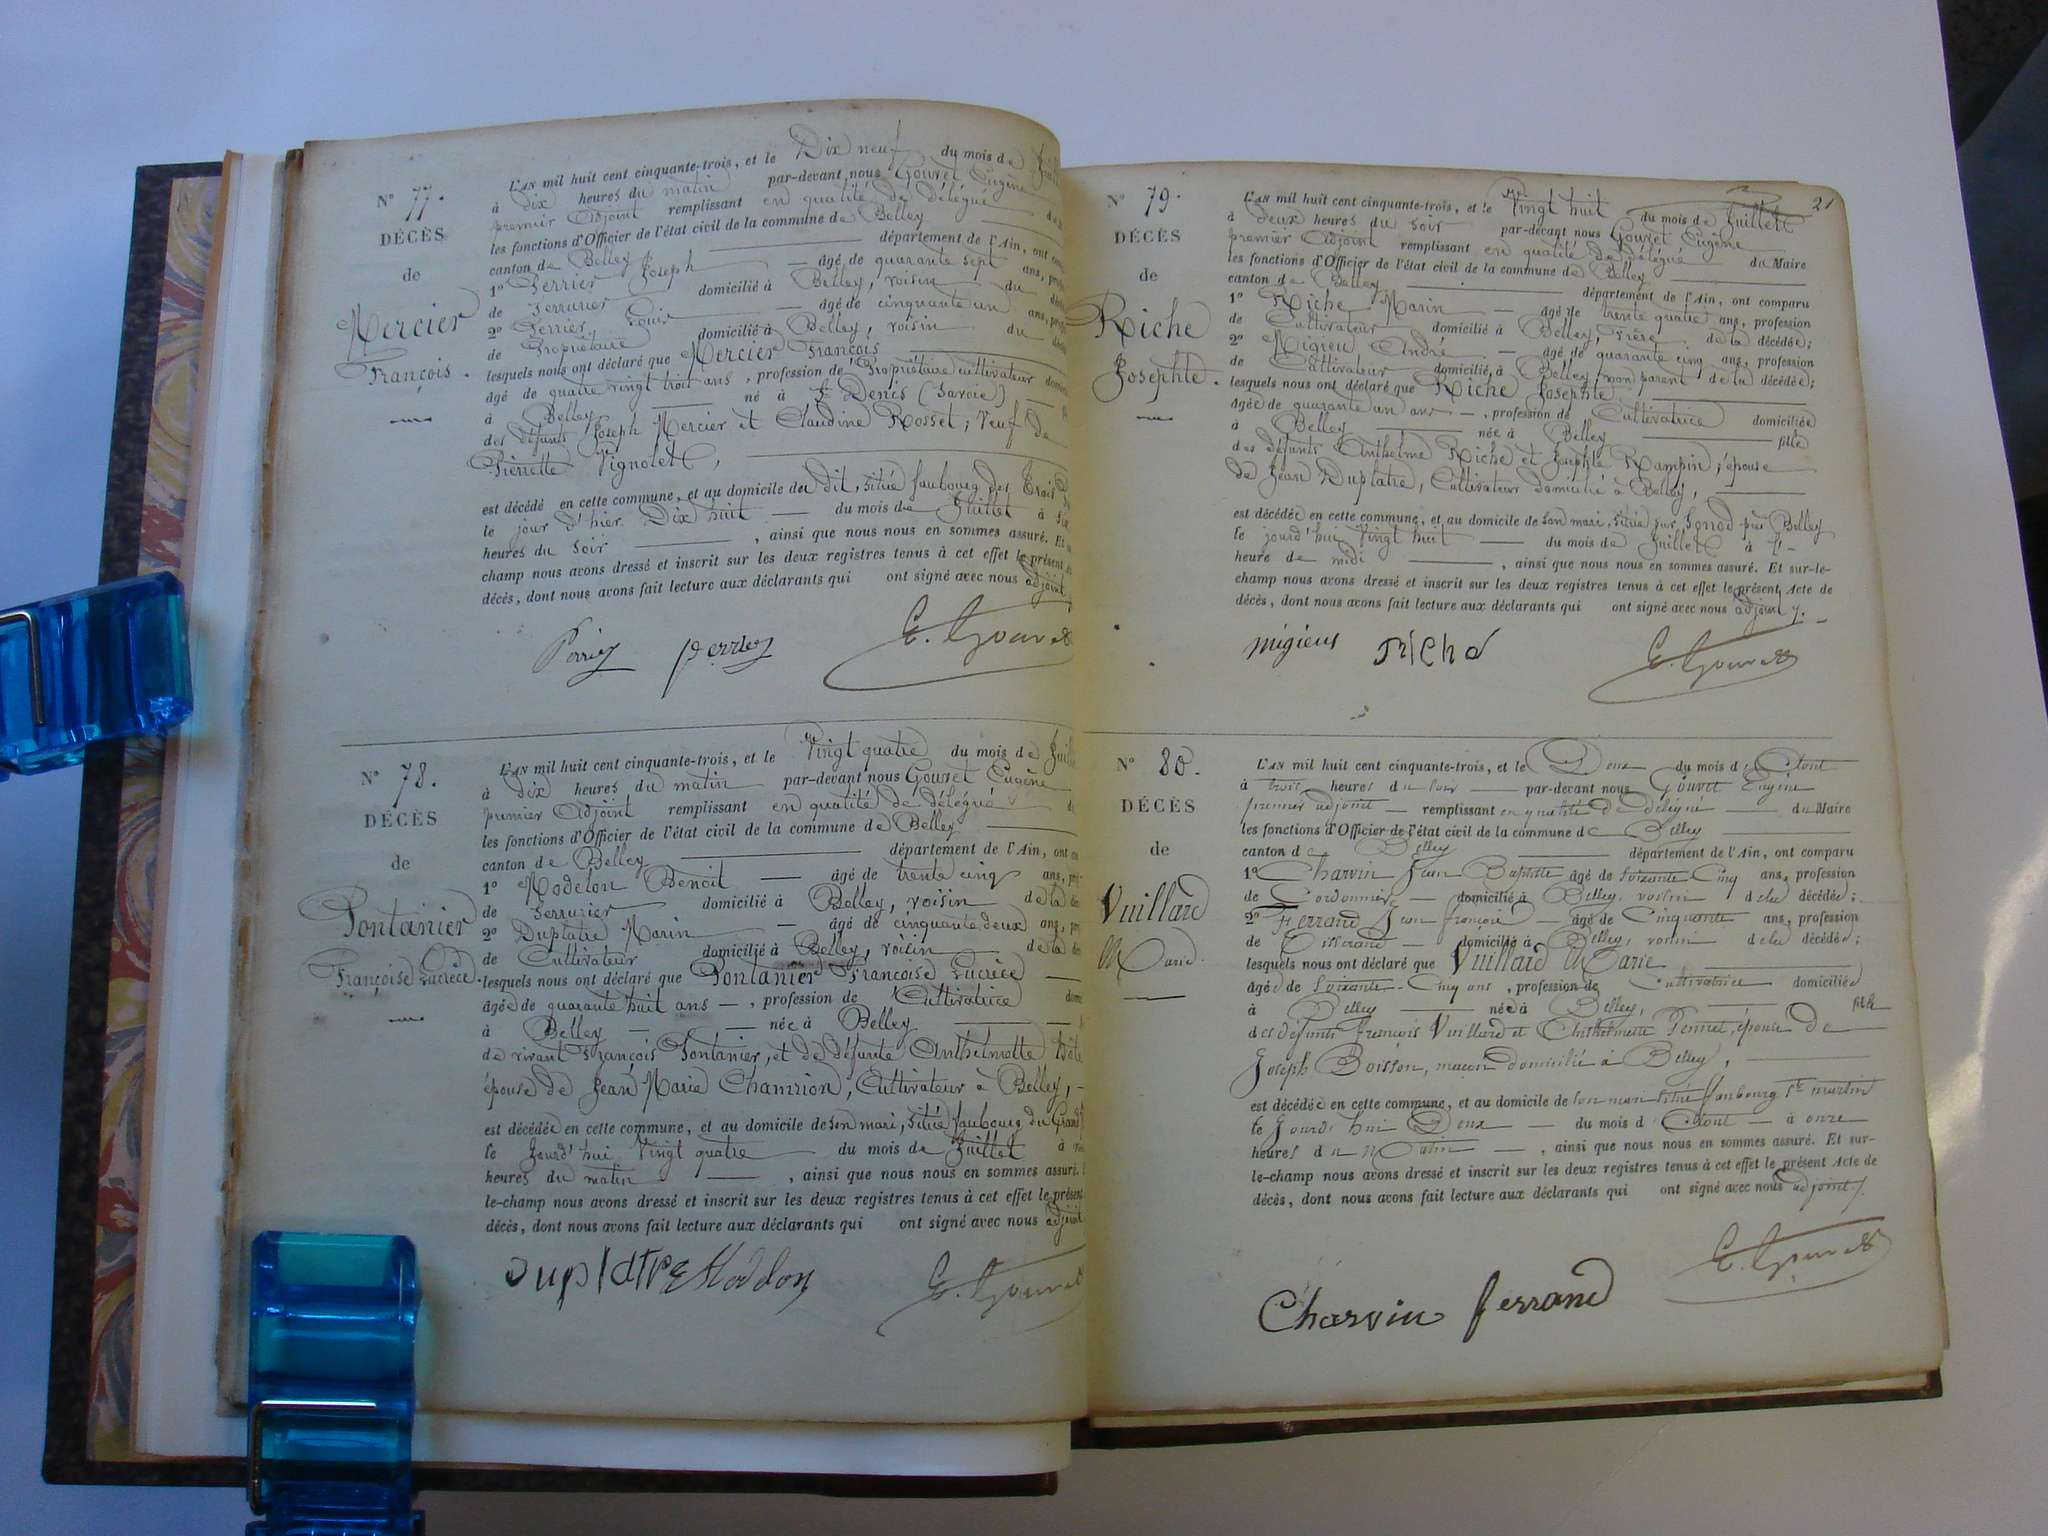 N° 77.
DÉCÈS
de
Mercier
François.
L'AN mil huit cent cinquante-trois, et le Dix neuf du mois de
à dix heures du matin par-devant nous Gouvet Eugène
premier Adjoint remplissant en qualité de délégué
les fonctions d'Officier de l'état civil de la commune de Belley
canton de Belley département de l'Ain, ont
1° Perrier Joseph âgé de quarante sept ans,
de Serrurier domicilié à Belley, voisin du
2° Perrier, Louis âgé de cinquante un ans,
de Propriétaire domicilié à Belley, voisin du
lesquels nous ont déclaré que Mercier François
âgé de quatre vingt trois ans, profession de Propriétaire cultivateur
à Belley né à St Denis (Savoie)
des défunts Joseph Mercier et Claudine Rosset; veuf de
Pierrette Vignolet,
est décédé en cette commune, et au domicile du dit, situé faubourg des Trois
le jour d'hier Dix huit du mois de Juillet à six
heures du soir , ainsi que nous nous en sommes assuré. Et
champ nous avons dressé et inscrit sur les deux registres tenus à cet effet le présent
décès, dont nous avons fait lecture aux déclarants qui ont signé avec nous adjoint
Perrier perrier E. Gouvet
N° 78.
DÉCÈS
de
Pontanier
Françoise Lucrèce.
L'AN mil huit cent cinquante-trois, et le Vingt quatre du mois de
à dix heures du matin par-devant nous Gouvet Eugène
premier Adjoint remplissant en qualité de délégué
les fonctions d'Officier de l'état civil de la commune de Belley
canton de Belley département de l'Ain, ont
1° Modelon Benoit âgé de trente cinq ans,
de Serrurier domicilié à Belley, voisin de la
2° Duplatre Marin âgé de cinquante deux ans,
de Cultivateur domicilié à Belley, voisin de la
lesquels nous ont déclaré que Pontanier Françoise Lucrèce
âgée de quarante huit ans, profession de Cultivatrice
à Belley née à Belley
de vivant François Pontanier, et de défunte Anthelmette
épouse de Jean Marie Chamrion, Cultivateur à Belley,
est décédée en cette commune, et au domicile de son mari, situé faubourg du Grand
le Jourd'hui Vingt quatre du mois de Juillet à
heures du matin , ainsi que nous nous en sommes assuré.
le-champ nous avons dressé et inscrit sur les deux registres tenus à cet effet le présent
décès, dont nous avons fait lecture aux déclarants qui ont signé avec nous adjoint
Duplatre Modelon E. Gouvet
21
N° 79.
DÉCÈS
de
Riche
Josephte.
L'AN mil huit cent cinquante-trois, et le Vingt huit du mois de Juillet
à deux heures du soir par-devant nous Gouvet Eugène
premier Adjoint remplissant en qualité de délégué du Maire
les fonctions d'Officier de l'état civil de la commune de Belley
canton de Belley département de l'Ain, ont comparu
1° Riche Marin âgé de trente quatre ans, profession
de Cultivateur domicilié à Belley, frère de la décédée;
2° Migieu André âgé de quarante cinq ans, profession
de Cultivateur domicilié à Belley, non parent de la décédée;
lesquels nous ont déclaré que Riche Josephte
âgée de quarante un ans, profession de Cultivatrice domiciliée
à Belley née à Belley fille
des défunts Anthelme Riche et Josephte Rampin; épouse
de Jean Duplatre, Cultivateur domicilié à Belley,
est décédée en cette commune, et au domicile de son mari, situé sur Sonod près Belley
le jourd'hui Vingt huit du mois de Juillet à l'
heure de midi , ainsi que nous nous en sommes assuré. Et sur-le-
champ nous avons dressé et inscrit sur les deux registres tenus à cet effet le présent Acte de
décès, dont nous avons fait lecture aux déclarants qui ont signé avec nous adjoint
migieu riche E. Gouvet
N° 80.
DÉCÈS
de
Vuillard
Marie.
L'AN mil huit cent cinquante-trois, et le Deux du mois d'Aout
à trois heures du soir par-devant nous Gouvet Eugène
premier adjoint remplissant en qualité de délégué du Maire
les fonctions d'Officier de l'état civil de la commune de Belley
canton de Belley département de l'Ain, ont comparu
1° Charvin Jean Baptiste âgé de soixante cinq ans, profession
de Cordonnier domicilié à Belley, voisin de la décédée;
2° Ferrand Jean François âgé de Cinquante ans, profession
de Tisserand domicilié à Belley, voisin de la décédée;
lesquels nous ont déclaré que Vuillard Marie
âgée de Soixante-Cinq ans, profession de Cultivatrice domiciliée
à Belley née à Belley, fille
des défunts François Vuillard et Anthelmette Perret, épouse de
Joseph Boisson, maçon domicilié à Belley,
est décédée en cette commune, et au domicile de son mari situé faubourg St martin
le Jourd'hui Deux du mois d'Aout à onze
heures du Matin , ainsi que nous nous en sommes assuré. Et sur-
le-champ nous avons dressé et inscrit sur les deux registres tenus à cet effet le présent Acte de
décès, dont nous avons fait lecture aux déclarants qui ont signé avec nous adjoint
E. Gouvet
Charvin ferrand